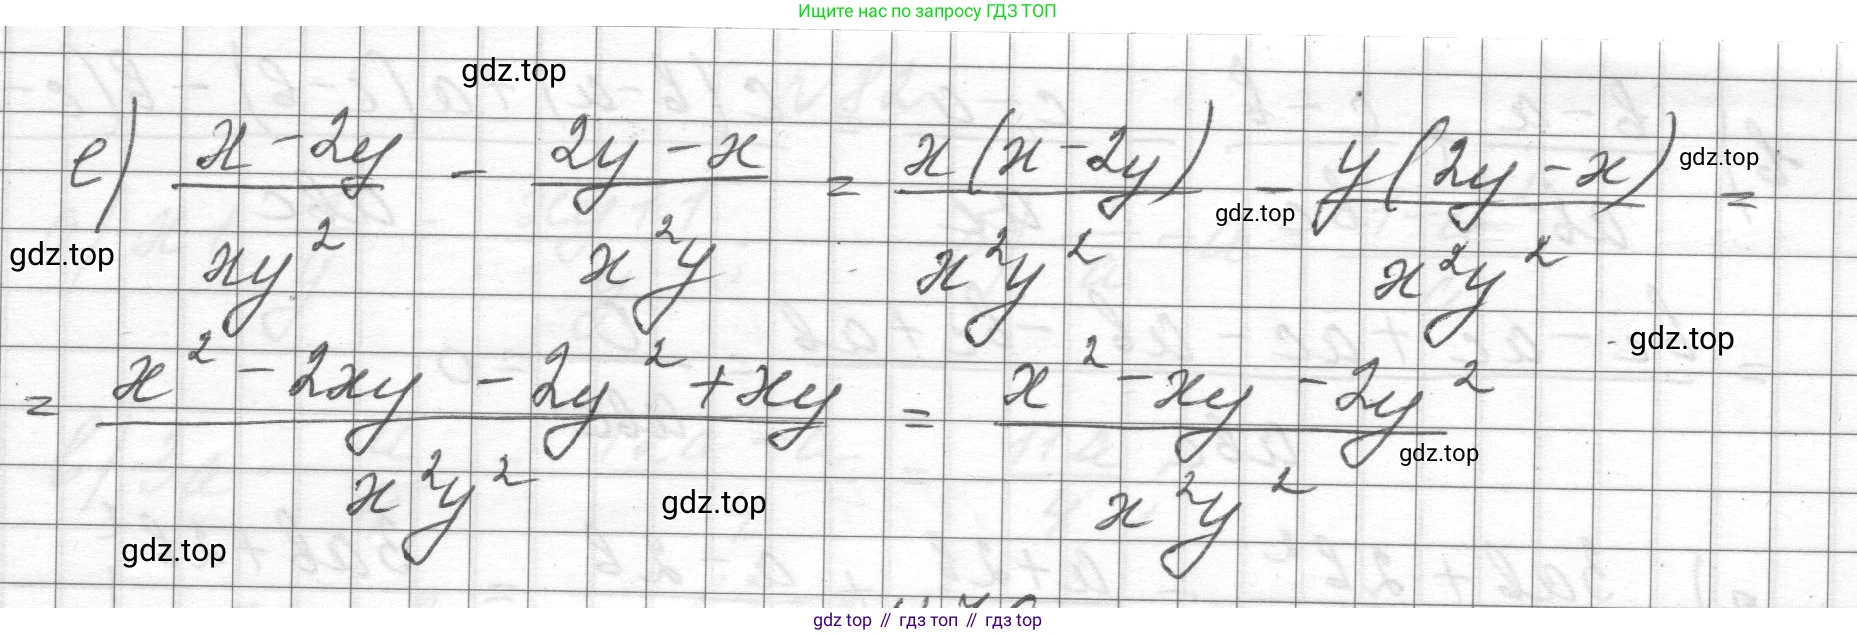 Ищите нас по запросу ГДЗ ТОП
gdz.top
е) (x - 2y)/(xy²) - (2y - x)/(x²y) = (x(x - 2y))/(x²y²) - (y(2y - x))/(x²y²) =
gdz.top
gdz.top
gdz.top
gdz.top
= (x² - 2xy - 2y² + xy)/(x²y²) = (x² - xy - 2y²)/(x²y²)
gdz.top
gdz.top
gdz.top
gdz top // гдз топ // гдз top